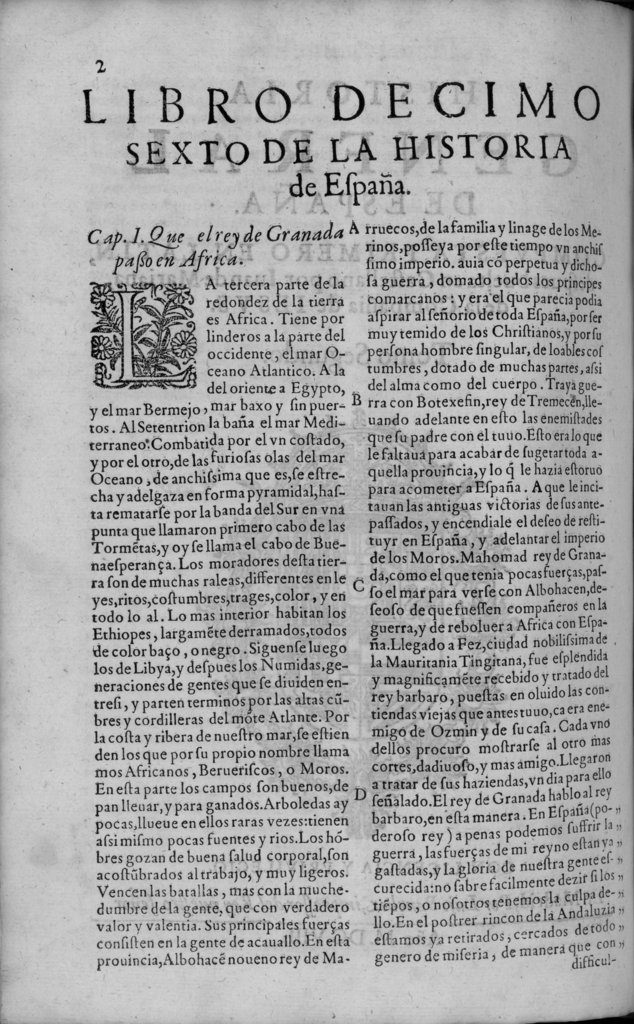 2
LIBRO DECIMO
SEXTO DE LA HISTORIA
de Eſpaña.
Cap. I. Que el rey de Granada
paßo en Africa.
LA tercera parte de la
redondez de la tierra
es Africa. Tiene por
linderos a la parte del
occidente, el mar O-
ceano Atlantico. A la
del oriente a Egypto,
y el mar Bermejo, mar baxo y ſin puer-
tos. Al Setentrion la baña el mar Medi-
terraneo. Combatida por el vn coſtado,
y por el otro, de las furioſas olas del mar
Oceano, de anchiſsima que es, ſe eſtre-
cha y adelgaza en forma pyramidal, haſ-
ta rematarſe por la banda del Sur en vna
punta que llamaron primero cabo de las
Tormẽtas, y oy ſe llama el cabo de Bue-
naeſperança. Los moradores deſta tier-
ra ſon de muchas raleas, differentes en le
yes, ritos, coſtumbres, trages, color, y en
todo lo al. Lo mas interior habitan los
Ethiopes, largamẽte derramados, todos
de color baço, o negro. Siguenſe luego
los de Libya, y deſpues los Numidas, ge-
neraciones de gentes que ſe diuiden en-
treſi, y parten terminos por las altas cũ-
bres y cordilleras del mõte Atlante. Por
la coſta y ribera de nueſtro mar, ſe eſtien
den los que por ſu propio nombre llama
mos Africanos, Berueriſcos, o Moros.
En eſta parte los campos ſon buenos, de
pan lleuar, y para ganados. Arboledas ay
pocas, llueue en ellos raras vezes: tienen
aſsi miſmo pocas fuentes y rios. Los hõ-
bres gozan de buena ſalud corporal, ſon
acoſtũbrados al trabajo, y muy ligeros.
Vencen las batallas, mas con la muche-
dumbre de la gente, que con verdadero
valor y valentia. Sus principales fuerças
conſiſten en la gente de acauallo. En eſta
prouincia, Albohacẽ noueno rey de Ma-
A rruecos, de la familia y linage de los Me-
rinos, poſſeya por eſte tiempo vn anchiſ
ſimo imperio. auia cõ perpetua y dicho-
ſa guerra, domado todos los principes
comarcanos: y era el que parecia podia
aſpirar al ſeñorio de toda Eſpaña, por ſer
muy temido de los Chriſtianos, y por ſu
perſona hombre ſingular, de loables coſ
tumbres, dotado de muchas partes, aſsi
del alma como del cuerpo. Traya gue-
B rra con Botexefin, rey de Tremecẽn, lle-
uando adelante en eſto las enemiſtades
que ſu padre con el tuuo. Eſto era lo que
le faltaua para acabar de ſugetar toda a-
quella prouincia, y lo q̃ le hazia eſtoruo
para acometer a Eſpaña. A que le inci-
tauan las antiguas victorias de ſus ante-
paſſados, y encendiale el deſeo de reſti-
tuyr en Eſpaña, y adelantar el imperio
de los Moros. Mahomad rey de Grana-
C da, como el que tenia pocas fuerças, paſ-
ſo el mar para verſe con Albohacen, de-
ſeoſo de que fueſſen compañeros en la
guerra, y de reboluer a Africa con Eſpa-
ña. Llegado a Fez, ciudad nobiliſsima de
la Mauritania Tingitana, fue eſplendida
y magnificamẽte recebido y tratado del
rey barbaro, pueſtas en oluido las con-
tiendas viejas que antes tuuo, ca era ene-
migo de Ozmin y de ſu caſa. Cada vno
dellos procuro moſtrarſe al otro mas
cortes, dadiuoſo, y mas amigo. Llegaron
a tratar de ſus haziendas, vn dia para ello
D ſeñalado. El rey de Granada hablo al rey
barbaro, en eſta manera. En Eſpaña (po- „
deroſo rey) a penas podemos ſuffrir la „
guerra, las fuerças de mi reyno eſtan ya „
gaſtadas, y la gloria de nueſtra gente eſ- „
curecida: no ſabre facilmente dezir ſi los „
tiẽpos, o noſotros tenemos la culpa de- „
llo. En el poſtrer rincon de la Andaluzia „
eſtamos ya retirados, cercados de todo „
genero de miſeria, de manera que con „
difficul-